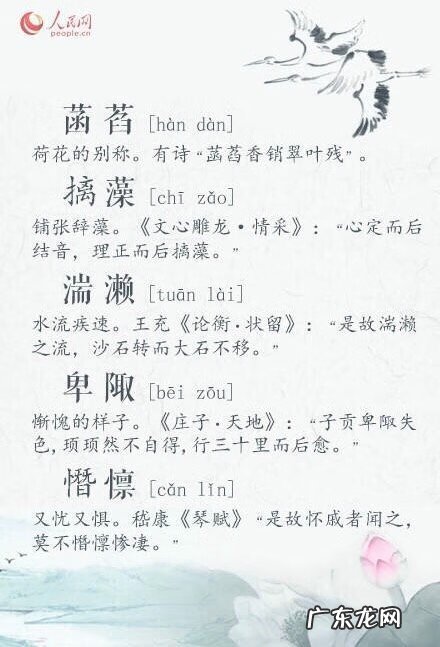 人民网
people.cn
菡萏 [hàn dàn]
荷花的别称。有诗“菡萏香销翠叶残”。
摛藻 [chī zǎo]
铺张辞藻。《文心雕龙·情采》：“心定而后
结音，理正而后摛藻。”
湍濑 [tuān lài]
水流疾速。王充《论衡·状留》：“是故湍濑
之流，沙石转而大石不移。”
卑陬 [bēi zōu]
惭愧的样子。《庄子·天地》：“子贡卑陬失
色，顼顼然不自得，行三十里而后愈。”
憯懔 [cǎn lǐn]
又忧又惧。嵇康《琴赋》“是故怀戚者闻之，
莫不憯懔惨凄。”
广东龙网